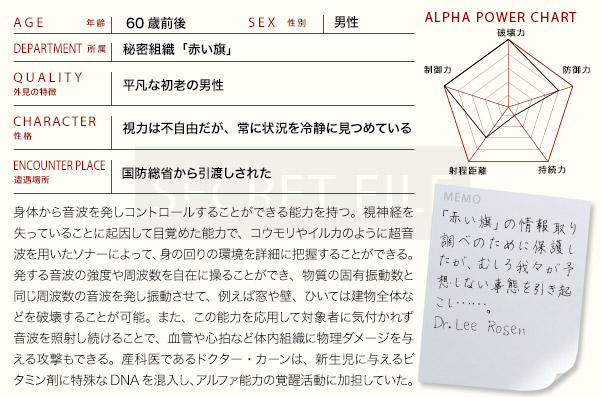 AGE 年齢 60歳前後 SEX 性別 男性
DEPARTMENT 所属 秘密組織「赤い旗」
QUALITY 外見の特徴 平凡な初老の男性
CHARACTER 性格 視力は不自由だが、常に状況を冷静に見つめている
ENCOUNTER PLACE 遭遇場所 国防総省から引渡しされた
SECRET FILE
身体から音波を発しコントロールすることができる能力を持つ。視神経を
失っていることに起因して目覚めた能力で、コウモリやイルカのように超音
波を用いたソナーによって、身の回りの環境を詳細に把握することができる。
発する音波の強度や周波数を自在に操ることができ、物質の固有振動数と
同じ周波数の音波を発し振動させて、例えば窓や壁、ひいては建物全体な
どを破壊することが可能。また、この能力を応用して対象者に気付かれず
音波を照射し続けることで、血管や心拍など体内組織に物理ダメージを与
える攻撃もできる。産科医であるドクター・カーンは、新生児に与えるビ
タミン剤に特殊なDNAを混入し、アルファ能力の覚醒活動に加担していた。
ALPHA POWER CHART
破壊力
制御力 防御力
射程距離 持続力
MEMO
「赤い旗」の情報取り
調べのために保護し
たが、むしろ我々が予
想しない事態を引き起
こし……。
Dr. Lee Rosen